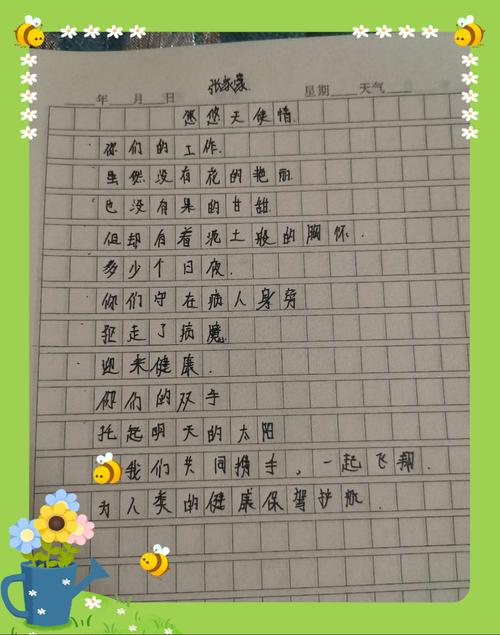 张家
年 月 日 星期 天气
悠悠天使情
你们的工作.
虽然没有花的艳丽.
也没有果的甘甜
但却有着泥土般的胸怀.
多少个日夜.
你们守在病人身旁
驱走了病魔
迎来健康.
你们的双手
托起明天的太阳
我们共同携手,一起飞翔.
为人类的健康保驾护航.